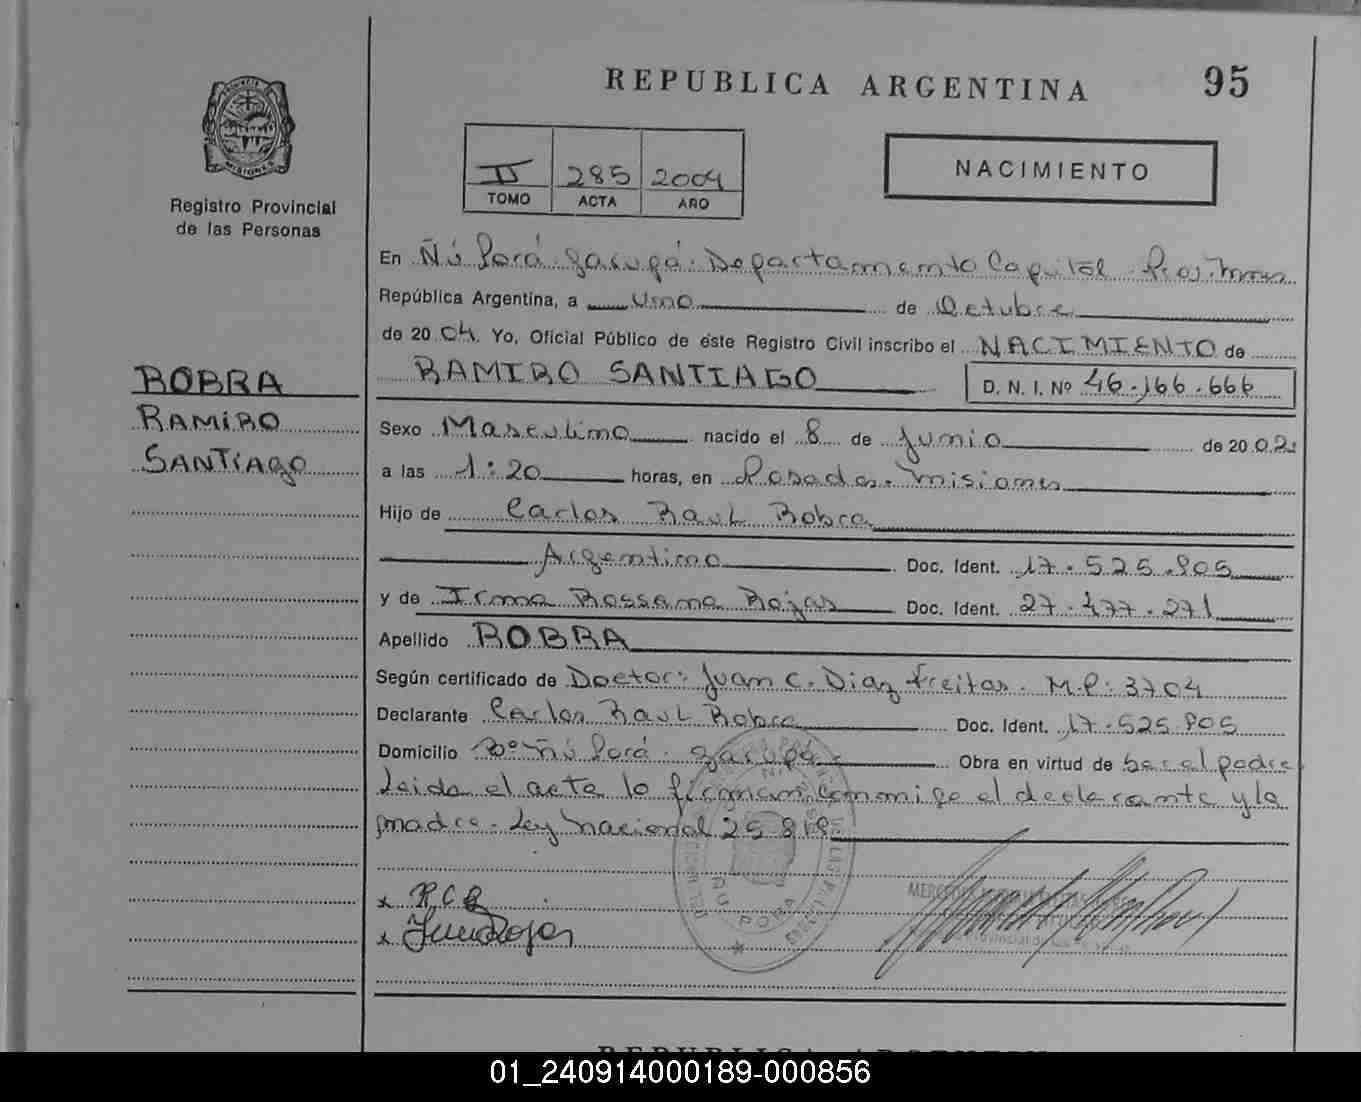 REPUBLICA ARGENTINA
95
PROVINCIA DE
MISIONES
Registro Provincial
de las Personas
II 285 2004
TOMO ACTA AÑO
NACIMIENTO
En Ñú Porá. Garupá. Departamento Capital.
República Argentina, a uno de Octubre
de 2004. Yo, Oficial Público de este Registro Civil inscribo el NACIMIENTO de
RAMIRO SANTIAGO D. N. I. Nº 46.166.666
BOBRA
RAMIRO
SANTIAGO
Sexo Masculino nacido el 8 de Junio de 2002
a las 1:20 horas, en Posadas. Misiones
Hijo de Carlos Raul Bobra
Argentino Doc. Ident. 17.525.905
y de Irma Rossana Rojas Doc. Ident. 27.477.271
Apellido BOBRA
Según certificado de Doctor: Juan C. Diaz Freitas. M.P: 3704
Declarante Carlos Raul Bobra Doc. Ident. 17.525.905
Domicilio Bº Ñú Porá. Garupá Obra en virtud de ser el padre
Leida el acta lo firman conmigo el declarante y la
madre. Ley Nacional 25.819
x R.C.B
x Irma Rojas
ÑU PORA
01_240914000189-000856